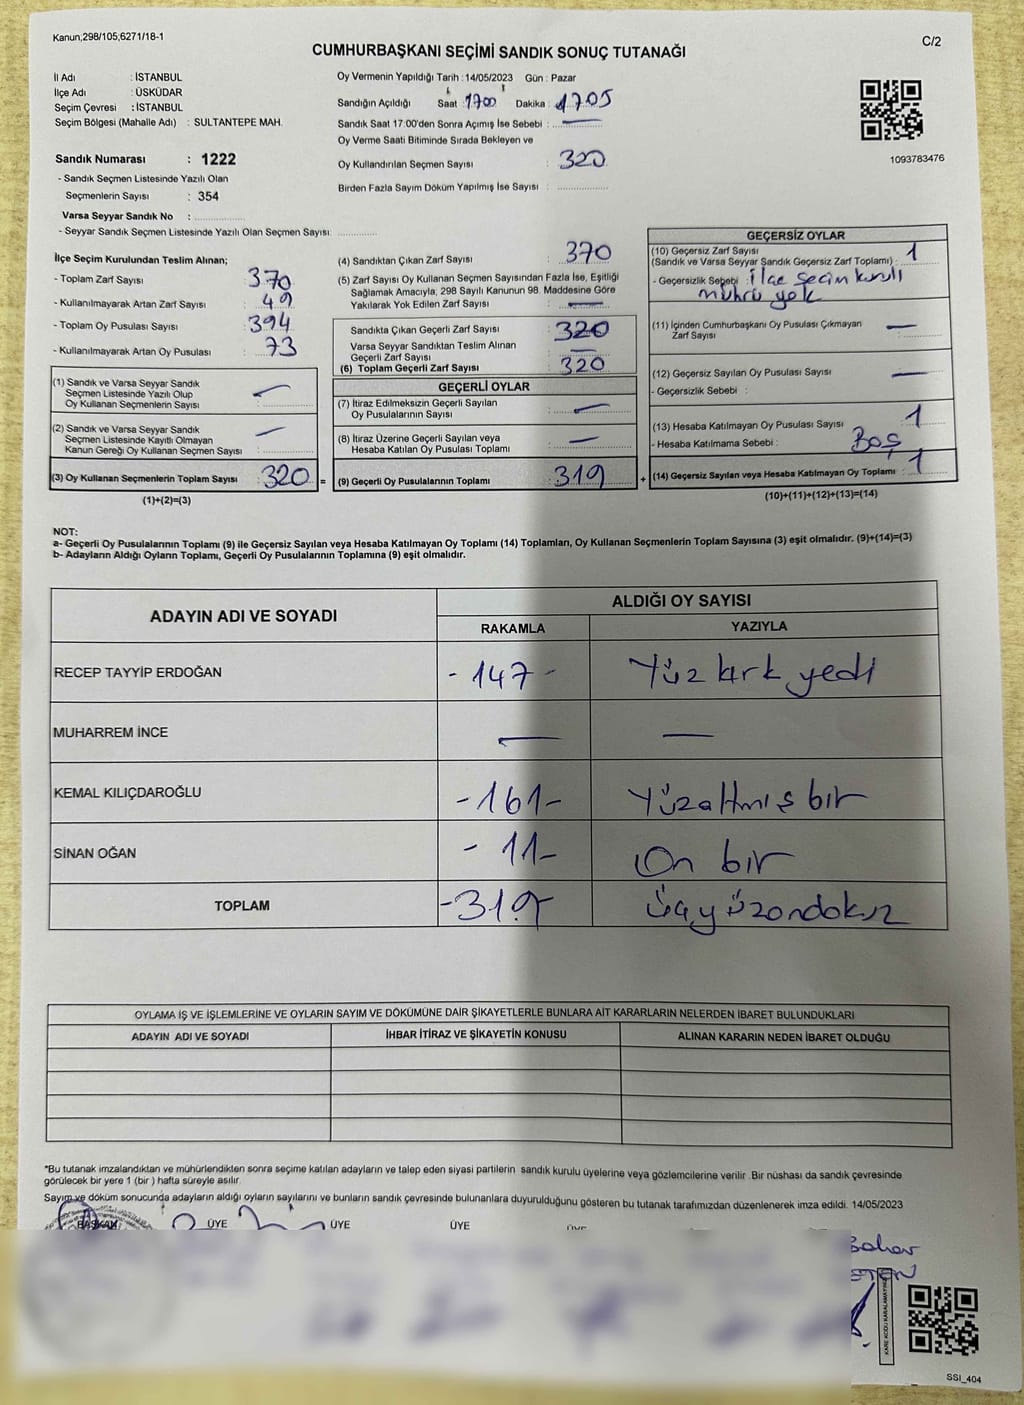 Kanun;298/105;6271/18-1
C/2
CUMHURBAŞKANI SEÇİMİ SANDIK SONUÇ TUTANAĞI
İl Adı : İSTANBUL
İlçe Adı : ÜSKÜDAR
Seçim Çevresi : İSTANBUL
Seçim Bölgesi (Mahalle Adı) : SULTANTEPE MAH.
Sandık Numarası : 1222
- Sandık Seçmen Listesinde Yazılı Olan
Seçmenlerin Sayısı : 354
Varsa Seyyar Sandık No :
- Seyyar Sandık Seçmen Listesinde Yazılı Olan Seçmen Sayısı:
Oy Vermenin Yapıldığı Tarih : 14/05/2023 Gün : Pazar
Sandığın Açıldığı Saat : 1700 Dakika : 1705
Sandık Saat 17:00'den Sonra Açımış İse Sebebi : —
Oy Verme Saati Bitiminde Sırada Bekleyen ve
Oy Kullandırılan Seçmen Sayısı : 320
Birden Fazla Sayım Döküm Yapılmış İse Sayısı :
1093783476
İlçe Seçim Kurulundan Teslim Alınan;
- Toplam Zarf Sayısı : 370
- Kullanılmayarak Artan Zarf Sayısı : 49
- Toplam Oy Pusulası Sayısı : 394
- Kullanılmayarak Artan Oy Pusulası : 73
(1) Sandık ve Varsa Seyyar Sandık
Seçmen Listesinde Yazılı Olup
Oy Kullanan Seçmenlerin Sayısı : —
(2) Sandık ve Varsa Seyyar Sandık
Seçmen Listesinde Kayıtlı Olmayan
Kanun Gereği Oy Kullanan Seçmen Sayısı : —
(3) Oy Kullanan Seçmenlerin Toplam Sayısı : 320 =
(1)+(2)=(3)
(4) Sandıktan Çıkan Zarf Sayısı : 370
(5) Zarf Sayısı Oy Kullanan Seçmen Sayısından Fazla İse, Eşitliği
Sağlamak Amacıyla, 298 Sayılı Kanunun 98. Maddesine Göre
Yakılarak Yok Edilen Zarf Sayısı : —
Sandıkta Çıkan Geçerli Zarf Sayısı : 320
Varsa Seyyar Sandıktan Teslim Alınan
Geçerli Zarf Sayısı : —
(6) Toplam Geçerli Zarf Sayısı : 320
GEÇERLİ OYLAR
(7) İtiraz Edilmeksizin Geçerli Sayılan
Oy Pusulalarının Sayısı : —
(8) İtiraz Üzerine Geçerli Sayılan veya
Hesaba Katılan Oy Pusulası Toplamı : —
(9) Geçerli Oy Pusulalarının Toplamı : 319 +
GEÇERSİZ OYLAR
(10) Geçersiz Zarf Sayısı
(Sandık ve Varsa Seyyar Sandık Geçersiz Zarf Toplamı) : 1
- Geçersizlik Sebebi : ilçe seçim kurulı
mührü yok
(11) İçinden Cumhurbaşkanı Oy Pusulası Çıkmayan
Zarf Sayısı : —
(12) Geçersiz Sayılan Oy Pusulası Sayısı : —
- Geçersizlik Sebebi :
(13) Hesaba Katılmayan Oy Pusulası Sayısı : 1
- Hesaba Katılmama Sebebi : Boş
(14) Geçersiz Sayılan veya Hesaba Katılmayan Oy Toplamı : 1
(10)+(11)+(12)+(13)=(14)
NOT:
a- Geçerli Oy Pusulalarının Toplamı (9) ile Geçersiz Sayılan ve Hesaba Katılmayan Oy Toplamı (14) Toplamları, Oy Kullanan Seçmenlerin Toplam Sayısına (3) eşit olmalıdır. (9)+(14)=(3)
b- Adayların Aldığı Oyların Toplamı, Geçerli Oy Pusulalarının Toplamına (9) eşit olmalıdır.
ADAYIN ADI VE SOYADI
ALDIĞI OY SAYISI
RAKAMLA YAZIYLA
RECEP TAYYİP ERDOĞAN -147- Yüz kırk yedi
MUHARREM İNCE — —
KEMAL KILIÇDAROĞLU -161- Yüzaltmış bir
SİNAN OĞAN -11- On bir
TOPLAM -319- Üçyüzondokuz
OYLAMA İŞ VE İŞLEMLERİNE VE OYLARIN SAYIM VE DÖKÜMÜNE DAİR ŞİKAYETLERLE BUNLARA AİT KARARLARIN NELERDEN İBARET BULUNDUKLARI
ADAYIN ADI VE SOYADI İHBAR İTİRAZ VE ŞİKAYETİN KONUSU ALINAN KARARIN NEDEN İBARET OLDUĞU
*Bu tutanak imzalandıktan ve mühürlendikten sonra seçime katılan adayların ve talep eden siyasi partilerin sandık kurulu üyelerine veya gözlemcilerine verilir. Bir nüshası da sandık çevresinde
görülecek bir yere 1 (bir) hafta süreyle asılır.
Sayım ve döküm sonucunda adayların aldığı oyların sayılarını ve bunların sandık çevresinde bulunanlara duyurulduğunu gösteren bu tutanak tarafımızdan düzenlenerek imza edildi. 14/05/2023
BAŞKAN ÜYE ÜYE ÜYE ÜYE
SSI_404